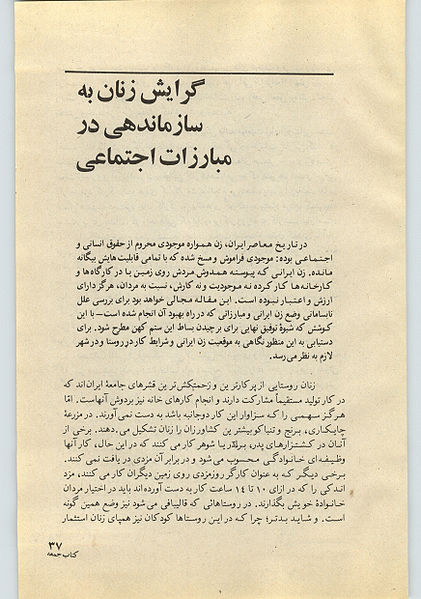 گرایش زنان به
سازماندهی در
مبارزات اجتماعی
در تاریخ معاصر ایران، زن همواره موجودی محروم از حقوق انسانی و
اجتماعی بوده: موجودی فراموش و مسخ شده که با تمامی قابلیت‌هایش بیگانه
مانده. زن ایرانی که پیوسته همدوش مردش روی زمین یا در کارگاه‌ها و
کارخانه‌ها کار کرده نه موجودیت و نه کارش، نسبت به مردان، هرگز دارای
ارزش و اعتبار نبوده است. این مقاله مجالی خواهد بود برای بررسی علل
نابسامانی وضع زن ایرانی و مبارزاتی که در راه بهبود آن انجام شده است – با این
کوشش که شیوۀ توفیق نهایی برای برچیدن بساط این ستم کهن مطرح شود. برای
دستیابی به این منظور نگاهی به موقعیت زن ایرانی و شرایط کار در روستا و در شهر
لازم به نظر می‌رسد.
زنان روستایی از پرکارترین و زحمتکش‌ترین قشرهای جامعۀ ایران‌اند که
در کار تولید مستقیماً مشارکت دارند و انجام کارهای خانه نیز بردوش آنهاست. امّا
هرگز سهمی را که سزاوار این کار دوجانبه باشد به دست نمی‌آورند. در مزرعۀ
چایکاری، برنج و تنباکو بیشترین کشاورزان را زنان تشکیل می‌دهند. برخی از
آنان در کشتزارهای پدر، برادر یا شوهر کار می‌کنند که در این حال، کار آنها
وظیفه‌ای خانوادگی محسوب می‌شود و در برابر آن مزدی دریافت نمی‌کنند.
برخی دیگر که به عنوان کارگر روزمزدی روی زمین دیگران کار می‌کنند، مزد
اندکی را که در ازای ۱۰ تا ۱٤ ساعت کار به دست آورده‌اند باید در اختیار مردان
خانوادۀ خویش بگذارند. در روستاهائی که قالیبافی می‌شود نیز وضع همین گونه
است. و شاید بدتر؛ چرا که در این روستاها کودکان نیز همپای زنان استثمار
۳۷
کتاب جمعه